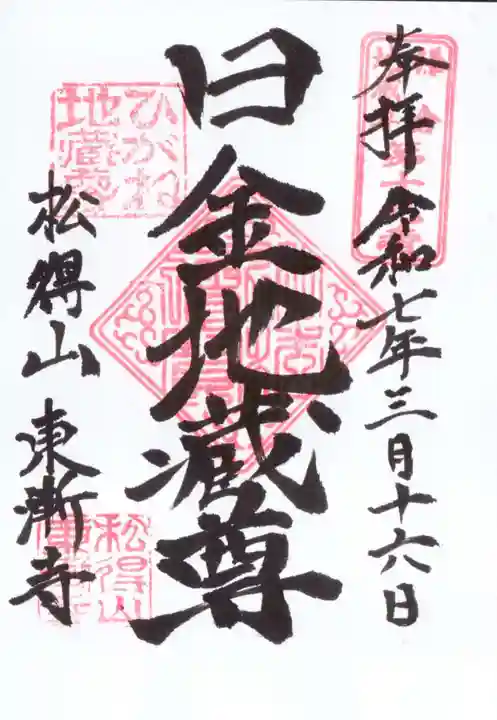 奉拝 令和七年三月十六日
日金地蔵尊
ひがね
地蔵尊
松得山 東漸寺
松得山